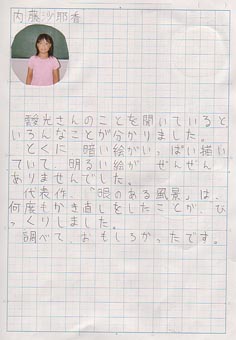 内藤沙耶香
靉光さんのことを聞いていると
いろんなことが分かりました。
とくに、暗い絵がいっぱい描い
ていて、明るい絵が、ぜんぜん
ありませんでした。
代表作、「眼のある風景」は、
何度もかき直しをしたことが、び
っくりしました。
調べて、おもしろかったです。